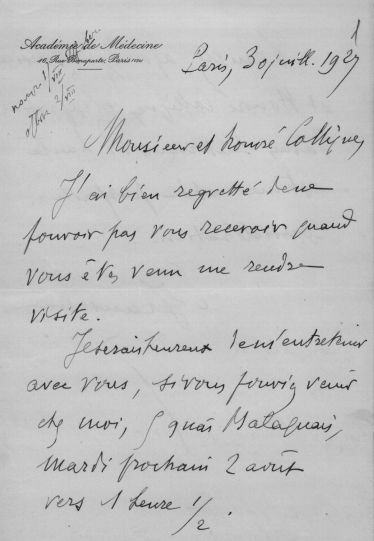 Académie de Médecine
16, Rue Bonaparte, Paris (VIe)
Paris, 30 juill. 1927
Monsieur et honoré Collègue,
J'ai bien regretté de ne
pouvoir pas vous recevoir quand
vous êtes venu me rendre
visite.
Je serais heureux de m'entretenir
avec vous, si vous pouviez venir
chez moi, 5 quai Malaquais,
mardi prochain 2 août
vers 1 heure 1/2.